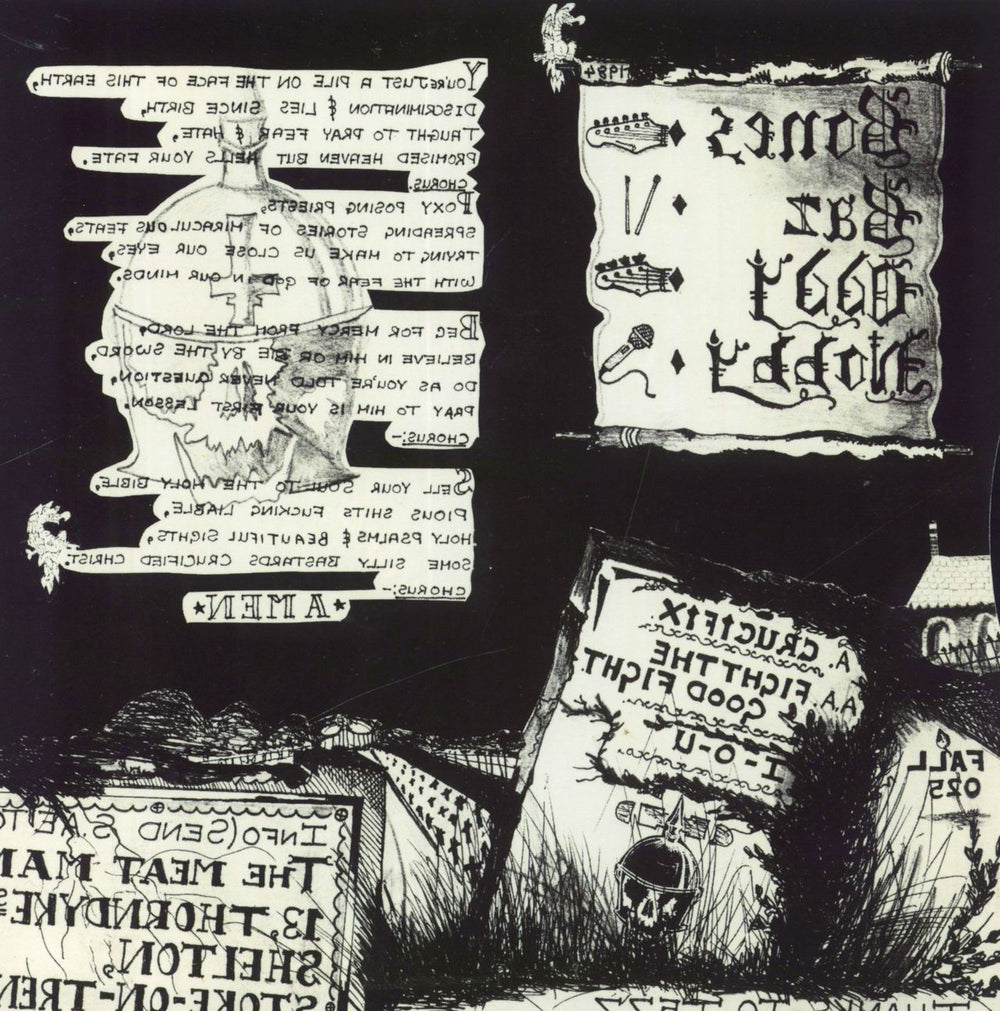 1984
Bones
Baz
Oddy
Nobby
You're just a pile on the face of this earth,
Discrimination & lies since birth,
Taught to pray fear & hate,
Promised heaven but hells your fate.
chorus
Poxy posing priests,
spreading stories of miraculous feats,
trying to make us close our eyes,
with the fear of god in our minds.
Beg for mercy from the lord,
Believe in him or die by the sword,
do as you're told never question,
pray to him is your first lesson.
chorus:-
Sell your soul to the holy bible,
Pious shits fucking liable,
Holy psalms & beautiful sights,
some silly bastards crucified christ.
chorus:-
★AMEN★
A. CRUCIFIX
AA. FIGHT THE
GOOD FIGHT
I-O-U
FALL
025
INFO (SEND S.AE TO
THE MEAT MAN
13, THORNDYKE
SHELTON,
STOKE-ON-TREN
THANKS TO TEZZ